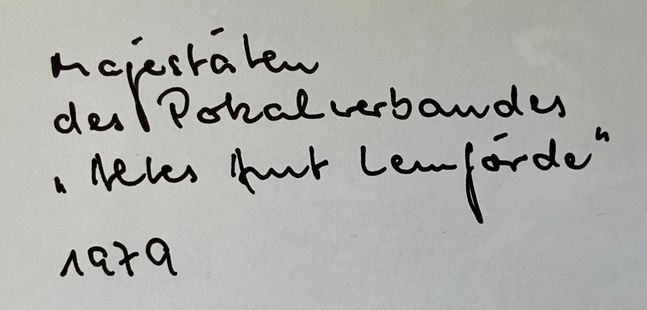 Majestäten
des Pokalverbandes
„Altes Amt Lemförde“
1979